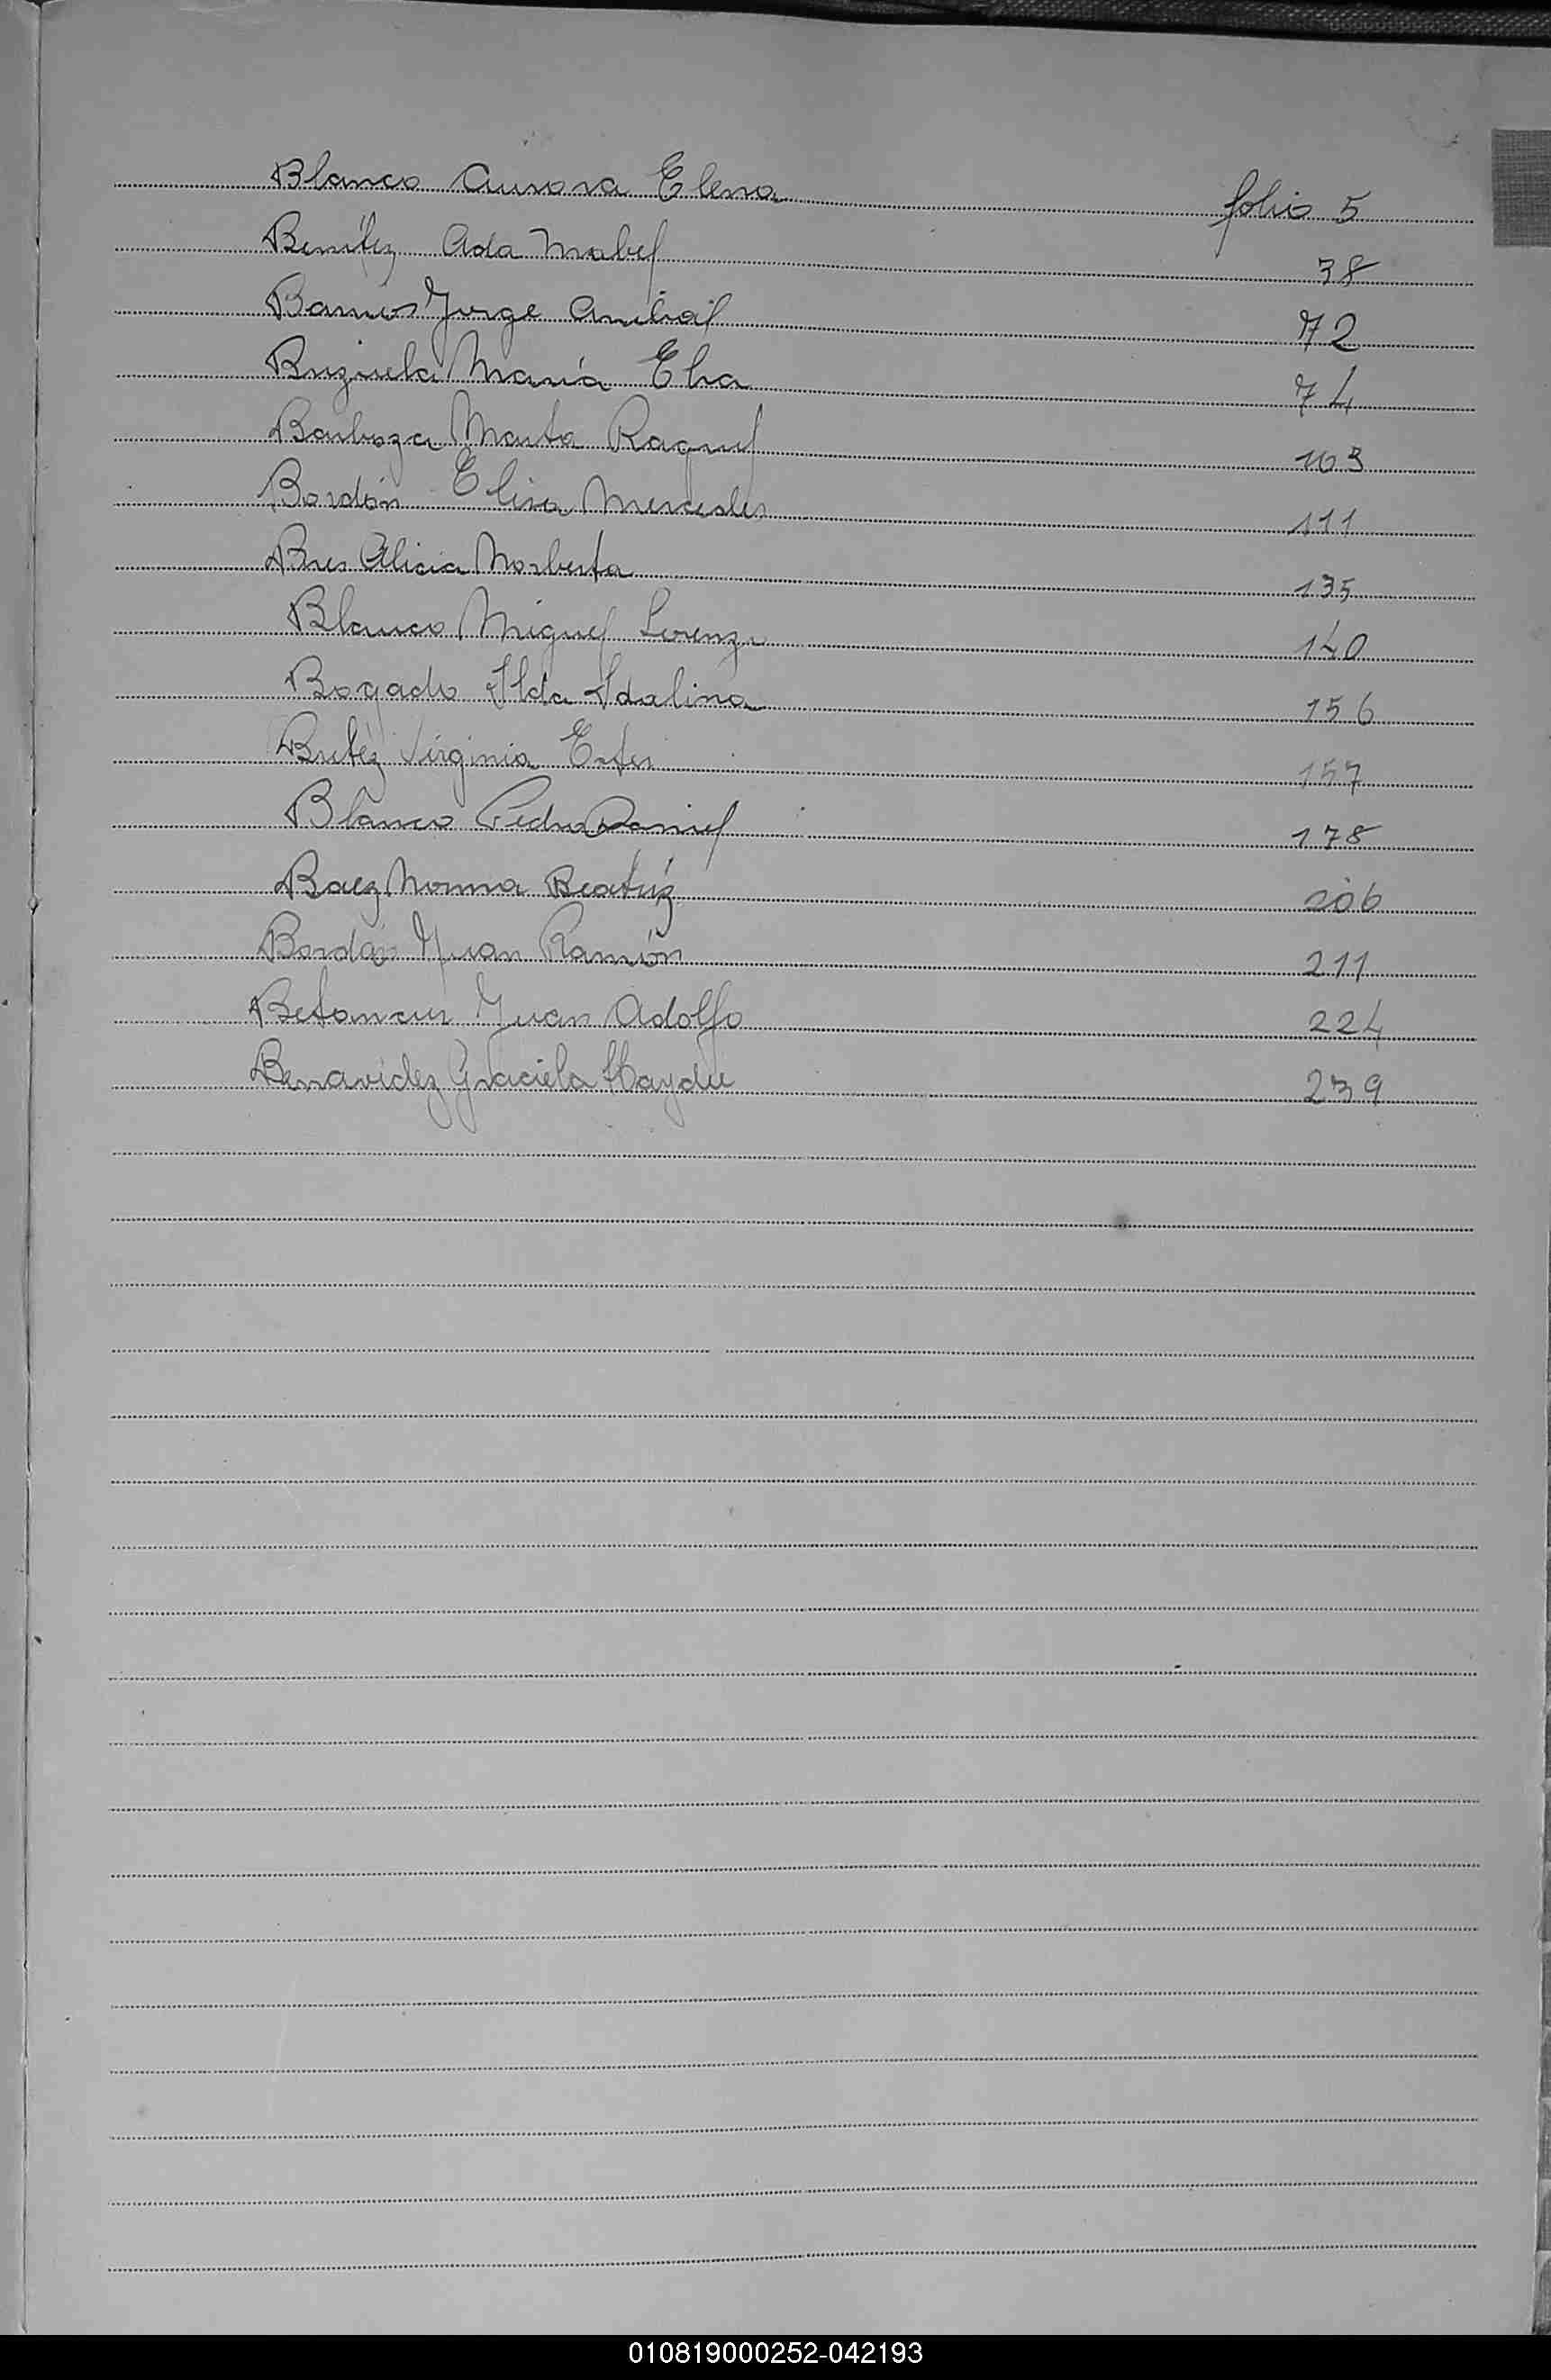 Blanco Aurora Elena folio 5
Benítez Ada Mabel 38
Barrios Jorge Anibal 72
Brizuela María Elva 74
Barboza Marta Raquel 103
Bordón Elisa Mercedes 111
Bres Alicia Norberta 135
Blanco Miguel Lorenzo 140
Bogado Ilda Idalina 156
Virginia Ester 157
Blanco Pedro Daniel 178
Baez Norma Beatríz 206
Bordón Juan Ramón 211
Betancur Juan Adolfo 224
Benavidez Graciela Haydée 239
010819000252-042193